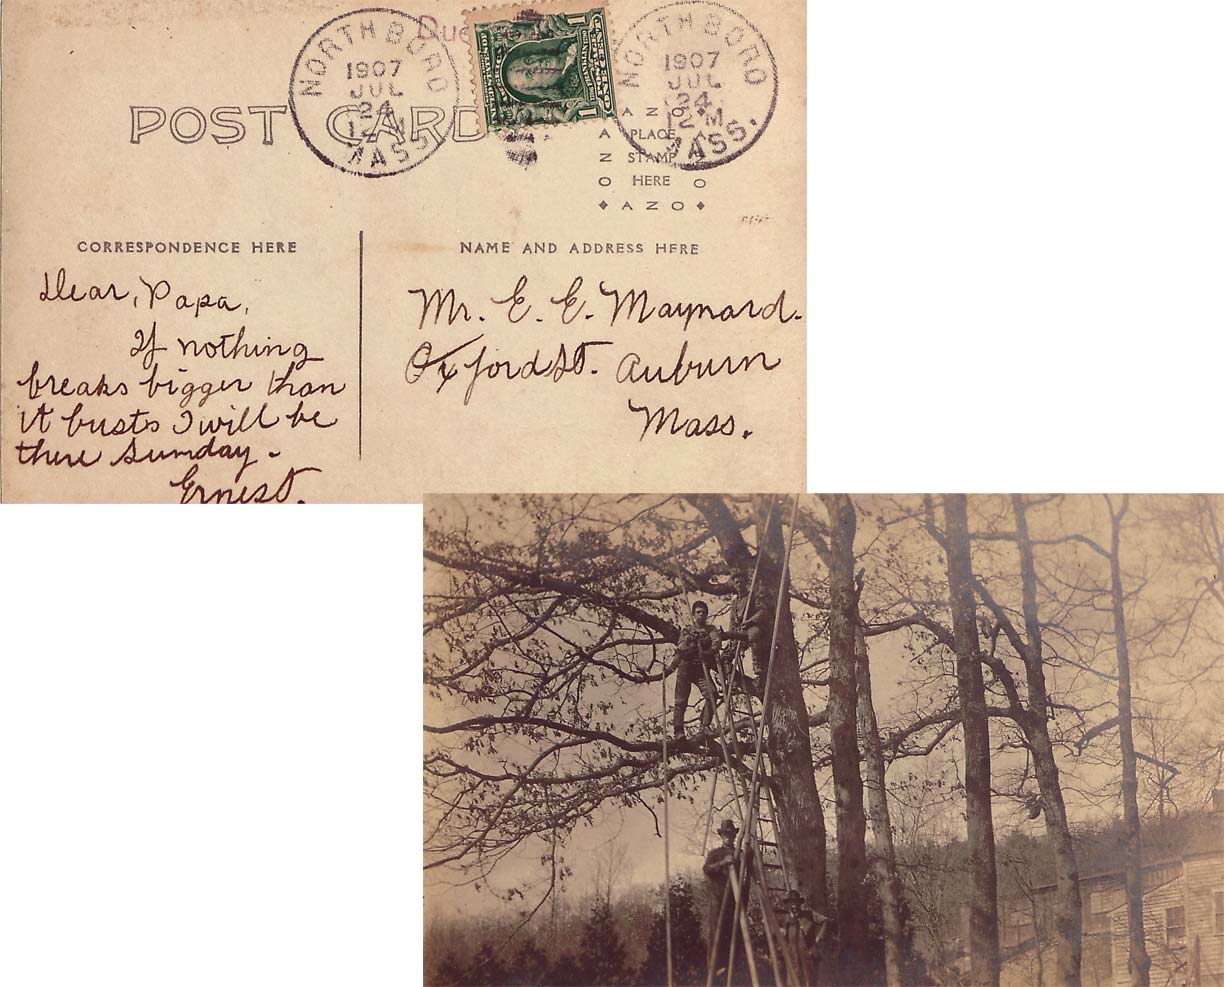 NORTHBORO
1907
JUL
24
12 M
MASS.
Due
NORTHBORO
1907
JUL
24
12 M
MASS.
POST CARD
AZO
PLACE
STAMP
HERE
AZO
CORRESPONDENCE HERE
NAME AND ADDRESS HERE
Dear, Papa,
If nothing
breaks bigger than
it busts I will be
there Sunday.
Ernest.
Mr. E. E. Maynard.
Oxford St. Auburn
Mass.